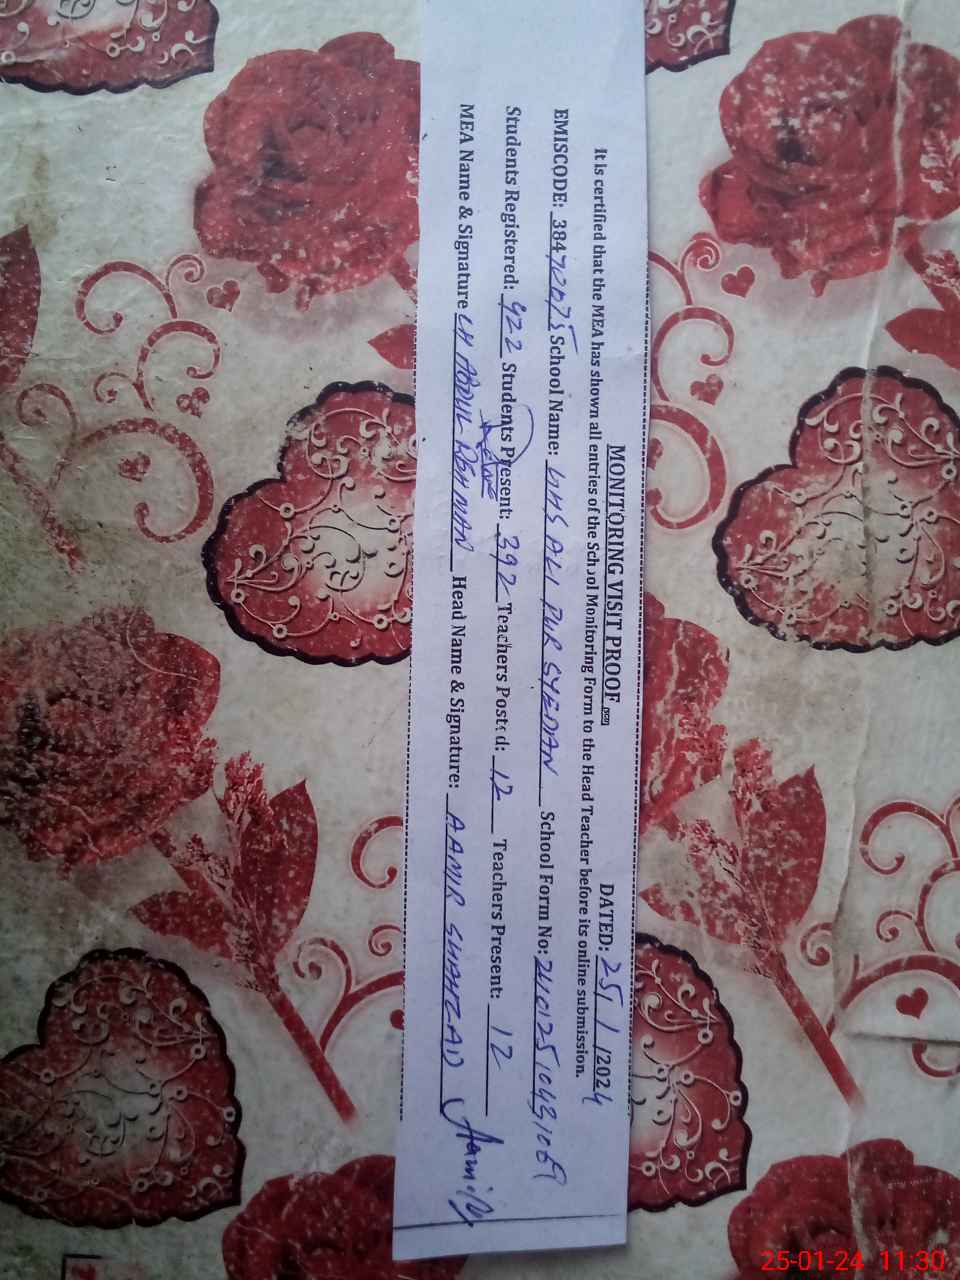 MONITORING VISIT PROOF DATED: 25/1/2024
It is certified that the MEA has shown all entries of the School Monitoring Form to the Head Teacher before its online submission.
EMISCODE: 38472075 School Name: GHS ALI PUR SYEDAN School Form No:
Students Registered: 422 Students Present: 392 Teachers Posted: 12 Teachers Present: 12
MEA Name & Signature CH ABDUL REHMAN Head Name & Signature: AAMIR SHAHZAD
25-01-24 11:30